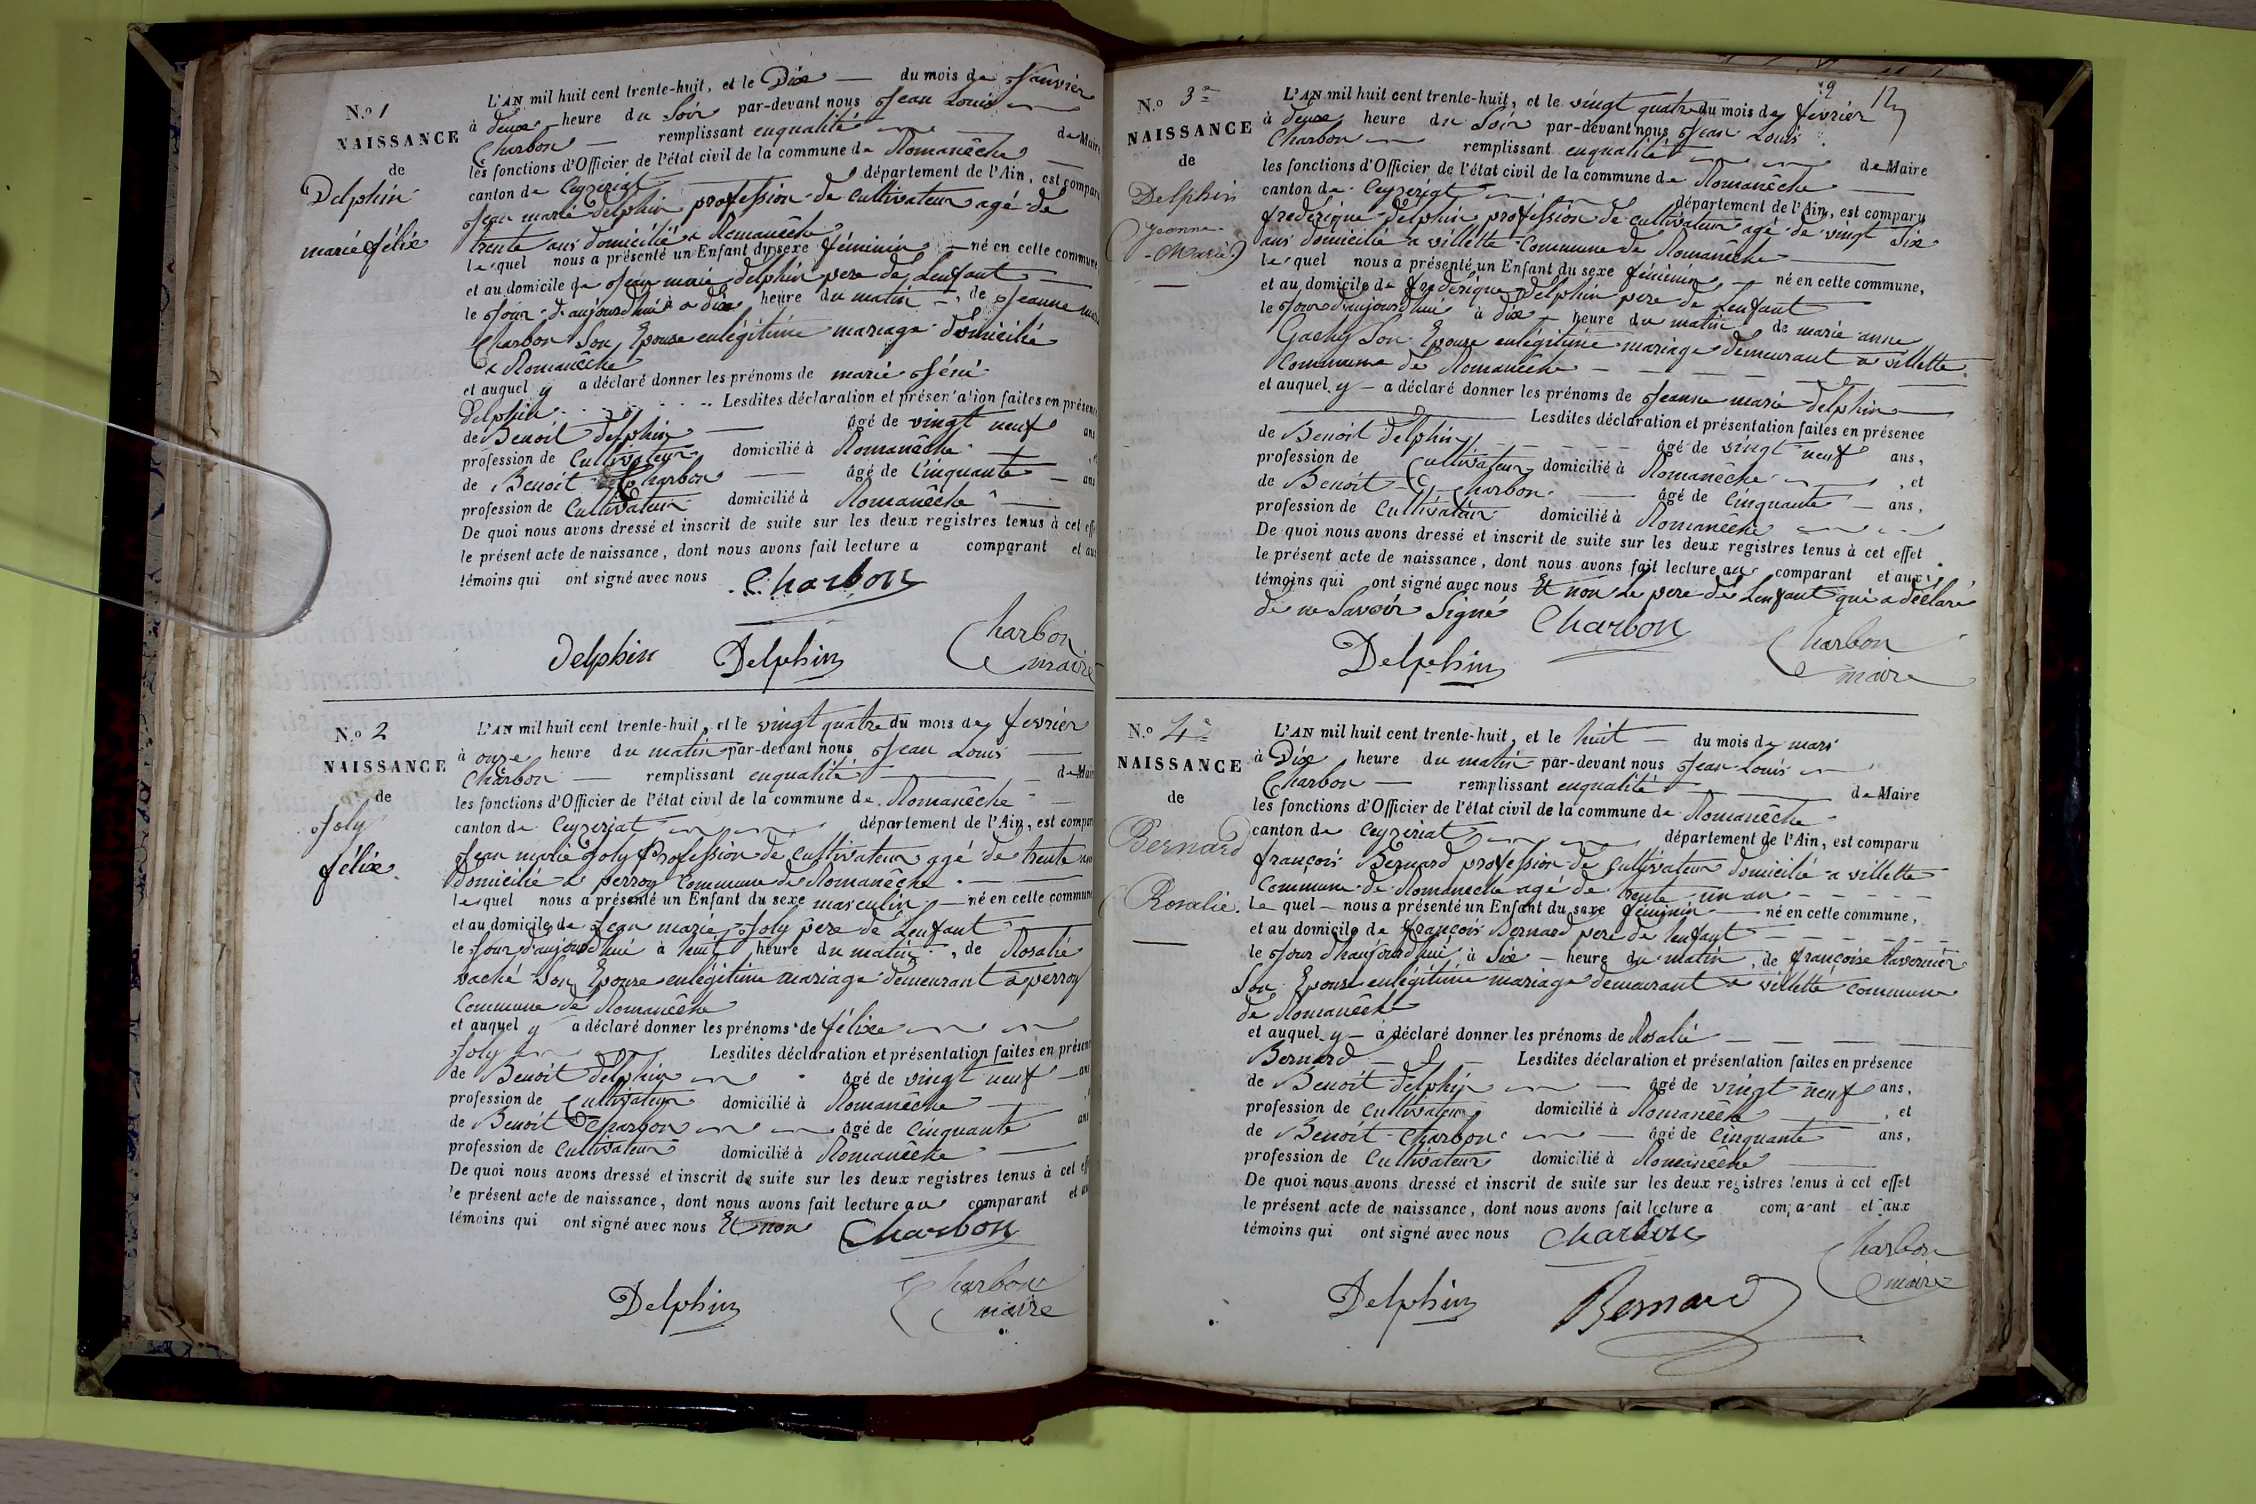 N.o 1
NAISSANCE
de
Delphin
marie félix
L'AN mil huit cent trente-huit, et le Dix — du mois de Janvier
à deux heure du Soir par-devant nous Jean Louis
Charbon — remplissant enqualité — de Maire
les fonctions d'Officier de l'état civil de la commune de Romanêche
canton de Ceyzeriat département de l'Ain, est comparu
Jean marie Delphin profession de Cultivateur agé de
trente ans domicilié a Romanêche
lequel nous a présenté un Enfant du sexe féminin — né en cette commune
et au domicile de Jean marie delphin pere de Lenfant
le Jour d'aujourdhui à dix heure du matin —, de Jeanne marie
Charbon Son Epouse enlégitime mariage domicilié
a Romanêche
et auquel y a déclaré donner les prénoms de marie
delphin Lesdites déclaration et présentation faites en présence
de Benoit delphin — âgé de vingt neuf ans
profession de Cultivateur domicilié à Romanêche
de Benoit Charbon — âgé de Cinquante — ans
profession de Cultivateur domicilié à Romanêche
De quoi nous avons dressé et inscrit de suite sur les deux registres tenus à cet effe
le présent acte de naissance, dont nous avons fait lecture a comparant et aux
témoins qui ont signé avec nous Charbon
Delphin Delphin Charbon
maire
N.o 2
NAISSANCE
de
Joly
félix
L'AN mil huit cent trente-huit, et le vingt quatre du mois de fevrier
à onze heure du matin par-devant nous Jean Louis
Charbon — remplissant enqualité — de Maire
les fonctions d'Officier de l'état civil de la commune de Romanêche
canton de Ceyzeriat département de l'Ain, est comparu
Jean marie Joly Profession de Cultivateur agé de trente
domicilié a perroy Commune de Romanêche
lequel nous a présenté un Enfant du sexe masculin — né en cette commune
et au domicile de Jean marie Joly père de Lenfant
le Jour d'aujourdhui à huit heure du matin, de Rosalie
vaché Son Epouse enlégitime mariage demeurant a perroy
Commune de Romanêche
et auquel y a déclaré donner les prénoms de félix
Joly Lesdites déclaration et présentation faites en présence
de Benoit delphin âgé de vingt neuf — ans
profession de Cultivateur domicilié à Romanêche
de Benoit Charbon âgé de Cinquante ans
profession de Cultivateur domicilié à Romanêche
De quoi nous avons dressé et inscrit de suite sur les deux registres tenus à cet eff
le présent acte de naissance, dont nous avons fait lecture au comparant et au
témoins qui ont signé avec nous Et non Charbon
Delphin Charbon
maire
12
N.o 3
NAISSANCE
de
Delphin
(Jeanne
Marie)
L'AN mil huit cent trente-huit, et le vingt quatre du mois de fevrier
à deux heure du Soir par-devant nous Jean Louis
Charbon remplissant enqualité de Maire
les fonctions d'Officier de l'état civil de la commune de Romanêche
canton de Ceyzeriat département de l'Ain, est comparu
frederique Delphin profession de cultivateur agé de vingt Six
ans domicilié a villette Commune de Romanêche
lequel nous a présenté un Enfant du sexe féminin — né en cette commune,
et au domicile de frederique Delphin pere de Lenfant
le Jour d'aujourdhui à dix — heure du matin de marie anne
Gachy Son Epouse enlégitime mariage demeurant a villette
Commune de Romanêche
et auquel y — a déclaré donner les prénoms de Jeanne marie delphin
Lesdites déclaration et présentation faites en présence
de Benoit delphin âgé de vingt neuf ans,
profession de Cultivateur domicilié à Romanêche, et
de Benoit Charbon âgé de Cinquante — ans,
profession de Cultivateur domicilié à Romanêche
De quoi nous avons dressé et inscrit de suite sur les deux registres tenus à cet effet
le présent acte de naissance, dont nous avons fait lecture au comparant et aux
témoins qui ont signé avec nous Et non Le pere de Lenfant qui a déclaré
de ne Savoir Signé Charbon
Delphin Charbon
maire
N.o 4
NAISSANCE
de
Bernard
Rosalie.
L'AN mil huit cent trente-huit, et le huit — du mois de mars
à Dix heure du matin par-devant nous Jean Louis
Charbon — remplissant enqualité de Maire
les fonctions d'Officier de l'état civil de la commune de Romanêche
canton de Ceyzeriat département de l'Ain, est comparu
françois Bernard profession de Cultivateur domicilié a villette
Commune de Romaneche agé de trente un an
Lequel — nous a présenté un Enfant du sexe féminin — né en cette commune,
et au domicile de françois Bernard pere de lenfant
le Jour dhaujourdhui à Six — heure du matin, de françoise tavernier
Son Epouse enlégitime mariage demeurant a villette commune
de Romanêche
et auquel y — a déclaré donner les prénoms de Rosalie
Bernard Lesdites déclaration et présentation faites en présence
de Benoit delphin âgé de vingt neuf ans,
profession de Cultivateur domicilié à Romanêche, et
de Benoit Charbon âgé de Cinquante ans,
profession de Cultivateur domicilié à Romanêche
De quoi nous avons dressé et inscrit de suite sur les deux registres tenus à cet effet
le présent acte de naissance, dont nous avons fait lecture a comparant et aux
témoins qui ont signé avec nous Charbon
Delphin Bernard Charbon
maire